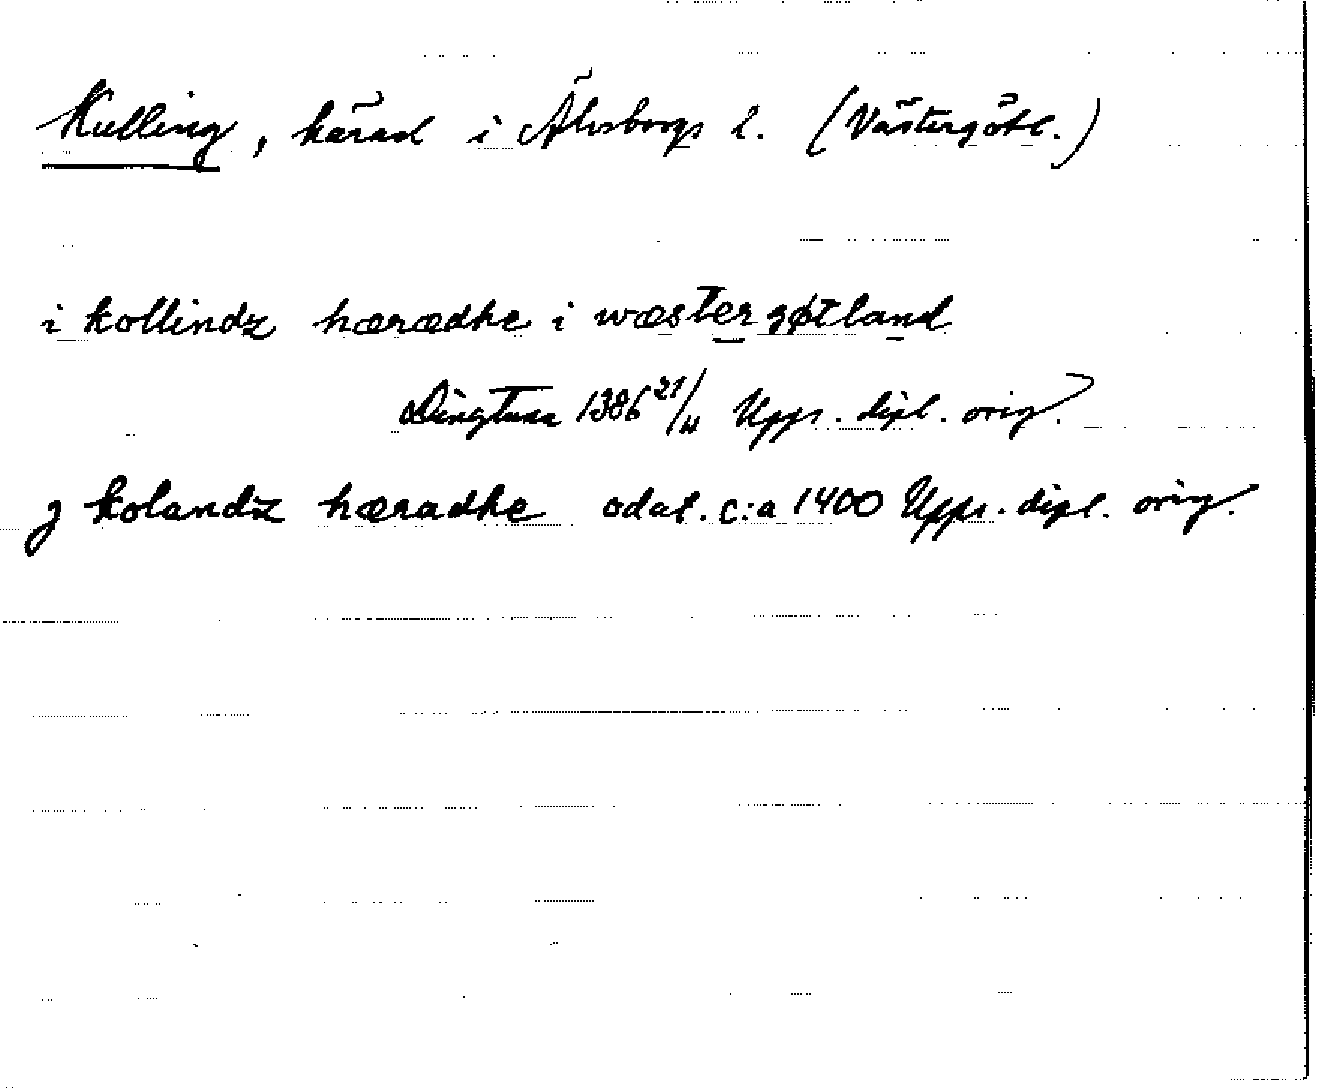 Kulling, härad i Älvsborgs l. (Västergötl.)
i kollindz hærædhe i wæstergøtland
Dingtuna 1386 21/11 Upps. dipl. orig.
j kolandz hæradhe odat. c:a 1400 Upps. dipl. orig.